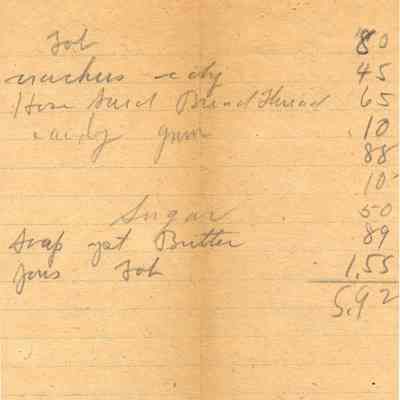 Tob 80
crackers cdy 45
Hose Bread Thread 65
candy gum .10
88
10
Sugar 50
Soap yst Butter 89
Tob 1.55
5.92